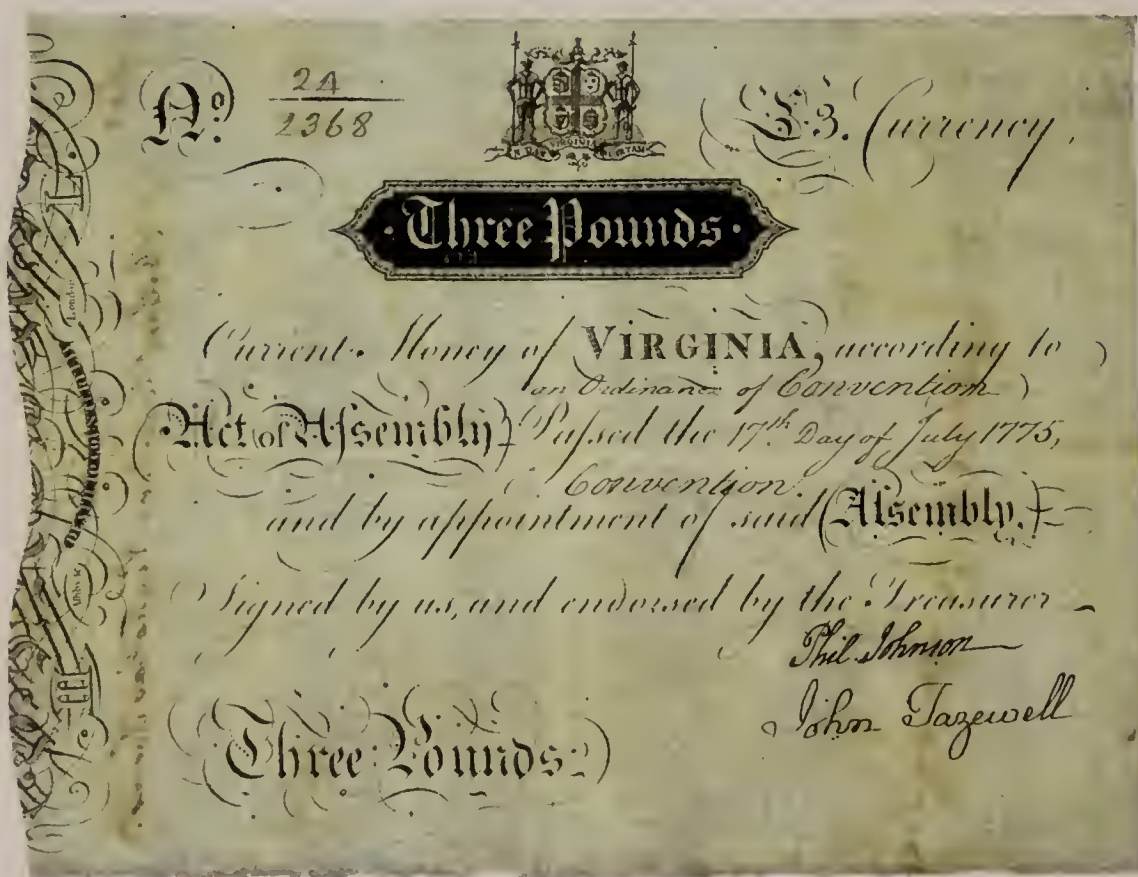 No. 24
2368
£3. Currency.
EN DAT VIRGINIA
· Three Pounds ·
Current Money of VIRGINIA, according to
an Ordinance of Convention
Act of Assembly Passed the 17th Day of July 1775,
Convention.
and by appointment of said (Assembly.)
Signed by us, and endorsed by the Treasurer
Phil Johnson
John Tazewell
Three Pounds.
London
Ashby